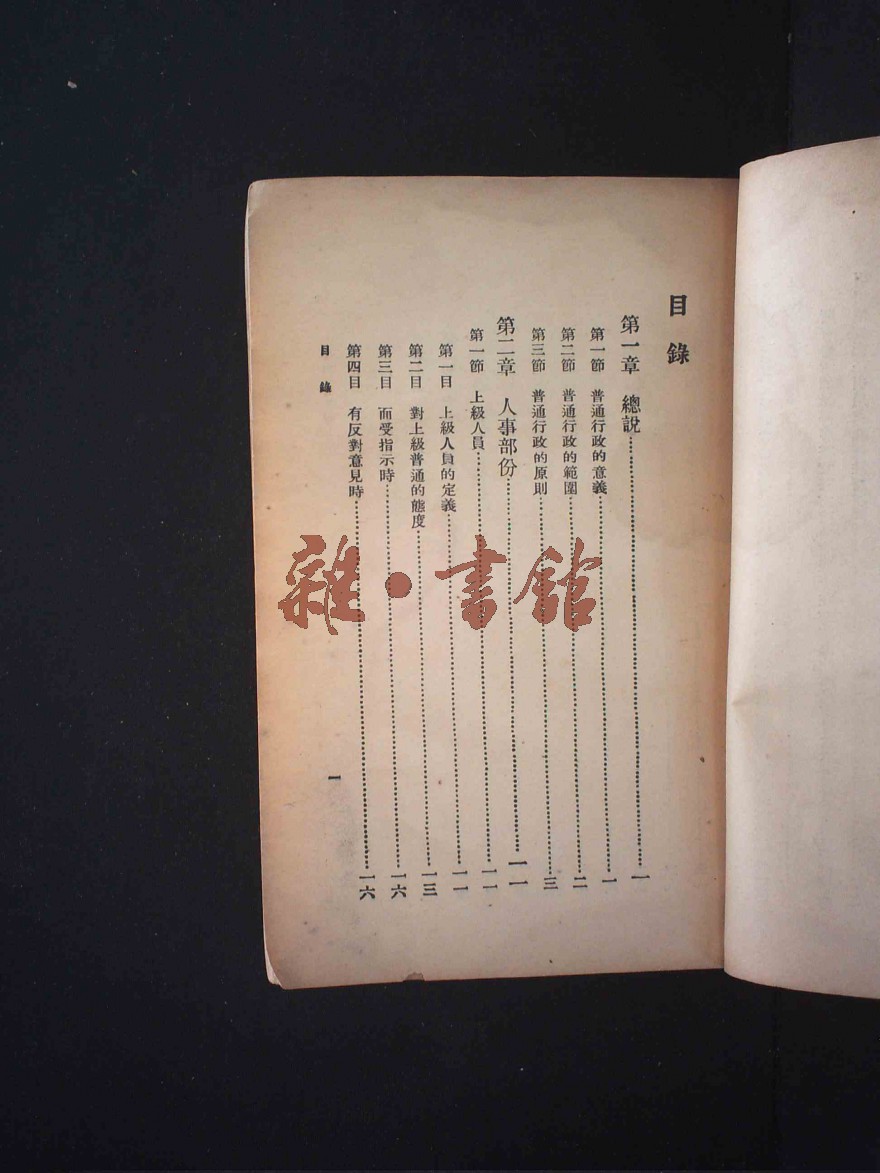 目錄
第一章 總說……一
第一節 普通行政的意義……一
第二節 普通行政的範圍……二
第三節 普通行政的原則……三
第二章 人事部份……一一
第一節 上級人員……一一
第一目 上級人員的定義……一一
第二目 對上級普通的態度……一三
第三目 面受指示時……一六
第四目 有反對意見時……一六
目錄
一
雜·書館